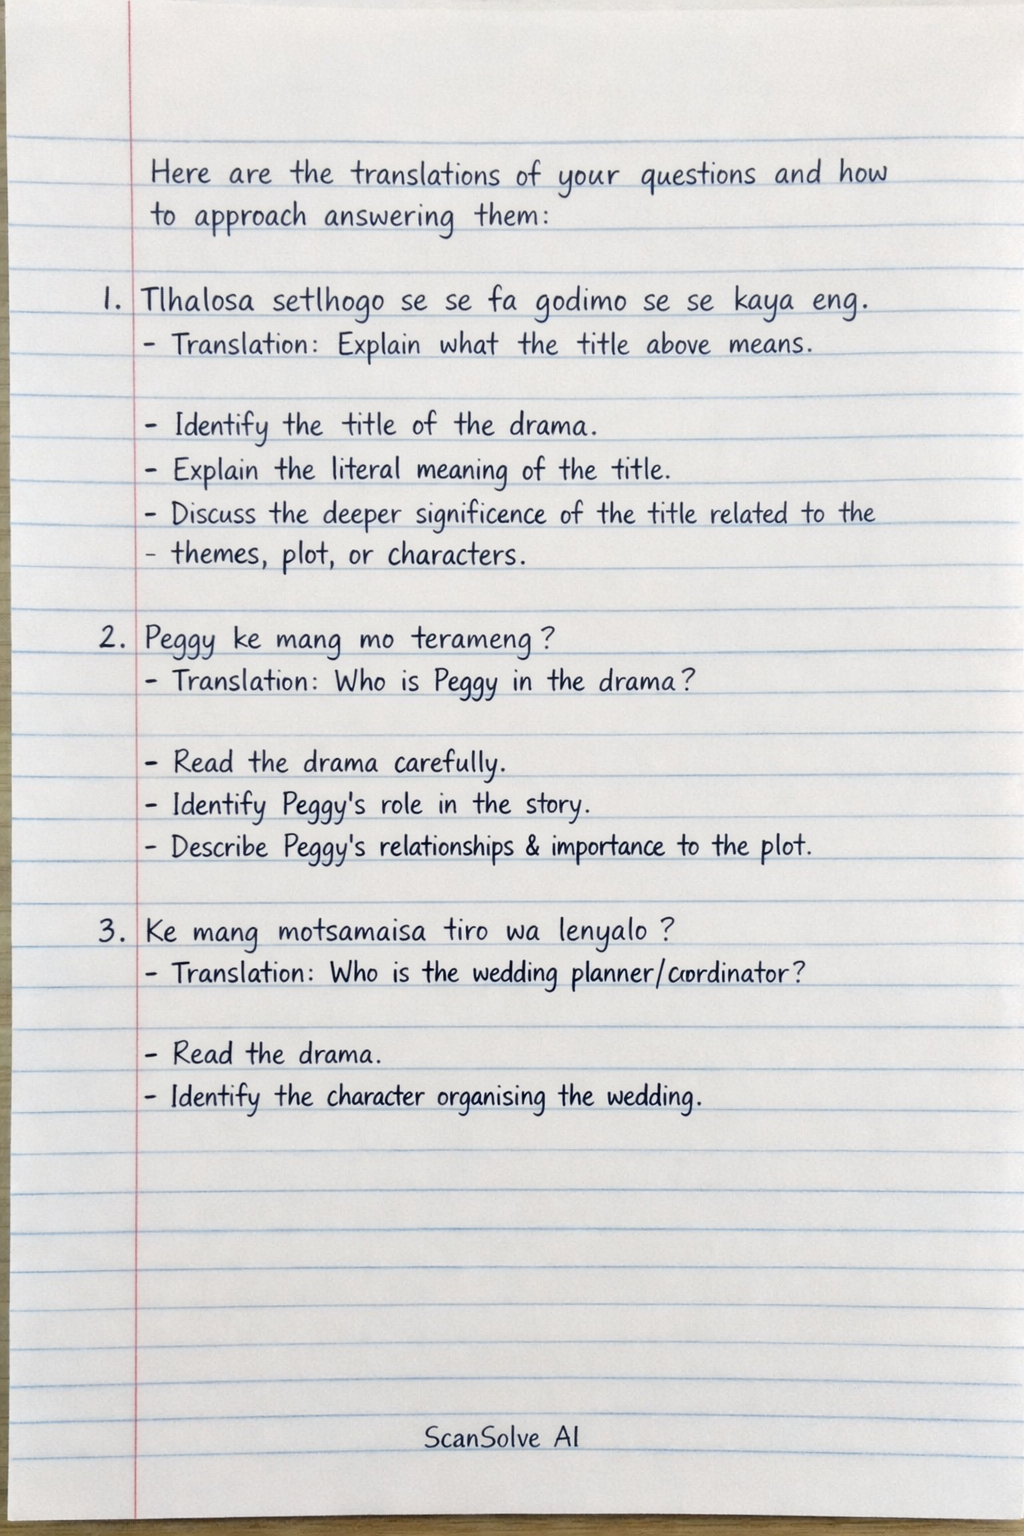 Here are the translations of your questions and how
to approach answering them:
1. Tlhalosa setlhogo se se fa godimo se se kaya eng.
- Translation: Explain what the title above means.
- Identify the title of the drama.
- Explain the literal meaning of the title.
- Discuss the deeper significence of the title related to the
- themes, plot, or characters.
2. Peggy ke mang mo terameng?
- Translation: Who is Peggy in the drama?
- Read the drama carefully.
- Identify Peggy's role in the story.
- Describe Peggy's relationships & importance to the plot.
3. Ke mang motsamaisa tiro wa lenyalo?
- Translation: Who is the wedding planner/coordinator?
- Read the drama.
- Identify the character organising the wedding.
ScanSolve AI